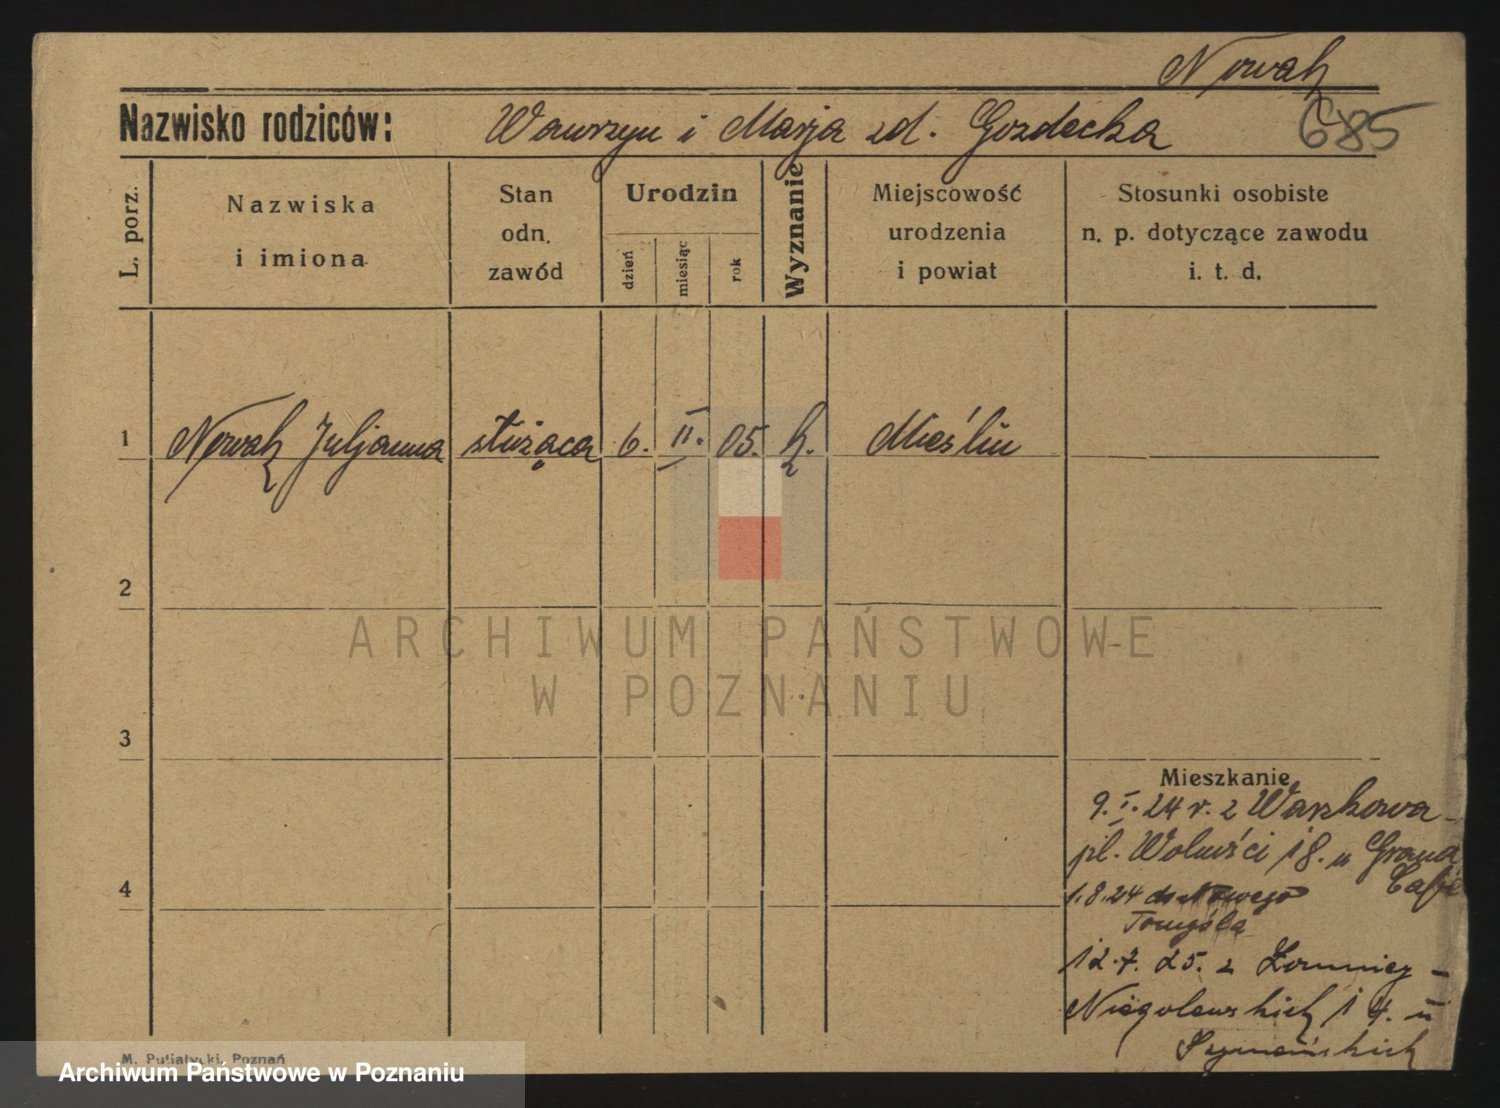 Nowak
Nazwisko rodziców: Wawrzyn i Marja zd. Gozdecka 685
L. porz.
Nazwiska i imiona
Stan odn. zawód
Urodzin
dzień miesiąc rok
Wyznanie
Miejscowość urodzenia i powiat
Stosunki osobiste n. p. dotyczące zawodu i. t. d.
1 Nowak Juljanna służąca 6. II. 05. k. Mieślin
2
ARCHIWUM PAŃSTWOWE
W POZNANIU
3
Mieszkanie
9. I. 24 r. z Warkowa -
pl. Wolności 18. u Grand
Café
4
1.8.24 do Nowego
Tomyśla
12.7.25. z Łomnicy -
Niegolewskich 14. u
Szymańskich
M. Putiatycki, Poznań
Archiwum Państwowe w Poznaniu